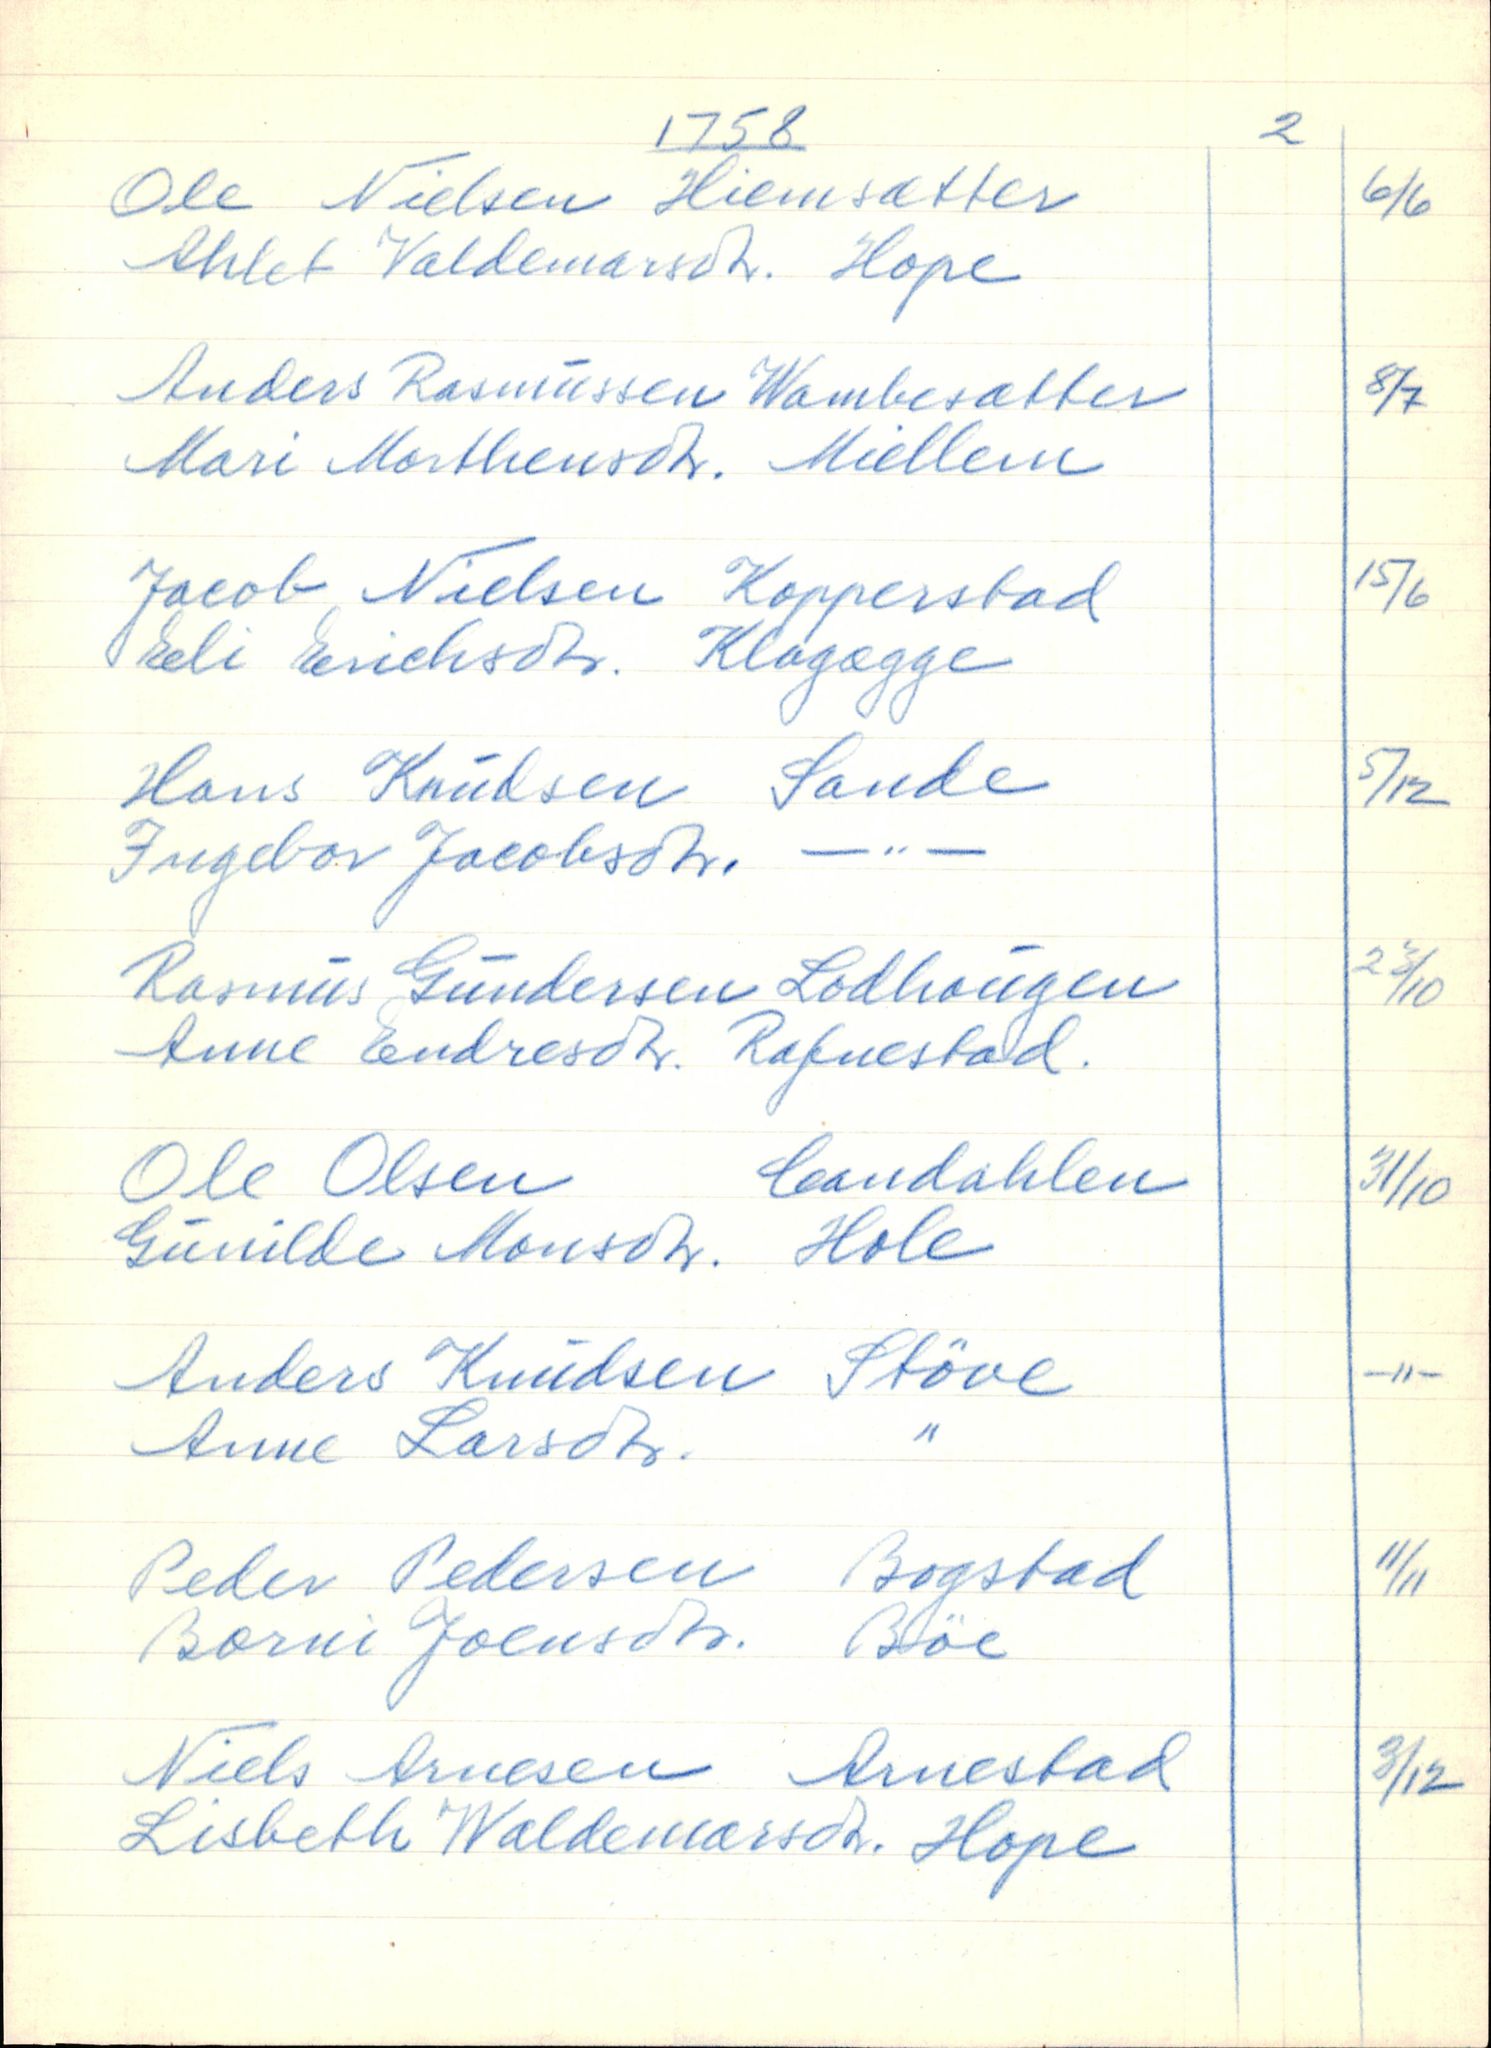 1758 2
Ole Nielsen Hiemsætter 6/6
Ahlet Valdemarsdtr. Hope
Anders Rasmussen Wambesætter 8/7
Mari Morthensdtr. Miellem
Jacob Nielsen Kopperstad 15/6
Eli Erichsdtr. Klagægge
Hans Knudsen Sande 5/12
Ingebor Jacobsdtr. —"—
Rasmus Gundersen Lodhougen 23/10
Anne Endresdtr. Rafnestad.
Ole Olsen Candahlen 31/10
Gunilde Monsdtr. Hole
Anders Knudsen Stöve —"—
Anne Larsdtr. "
Peder Pedersen Bogstad 11/11
Borni Joensdtr. Böe
Niels Arnesen Arnestad 3/12
Lisbeth Waldemarsdtr. Hope